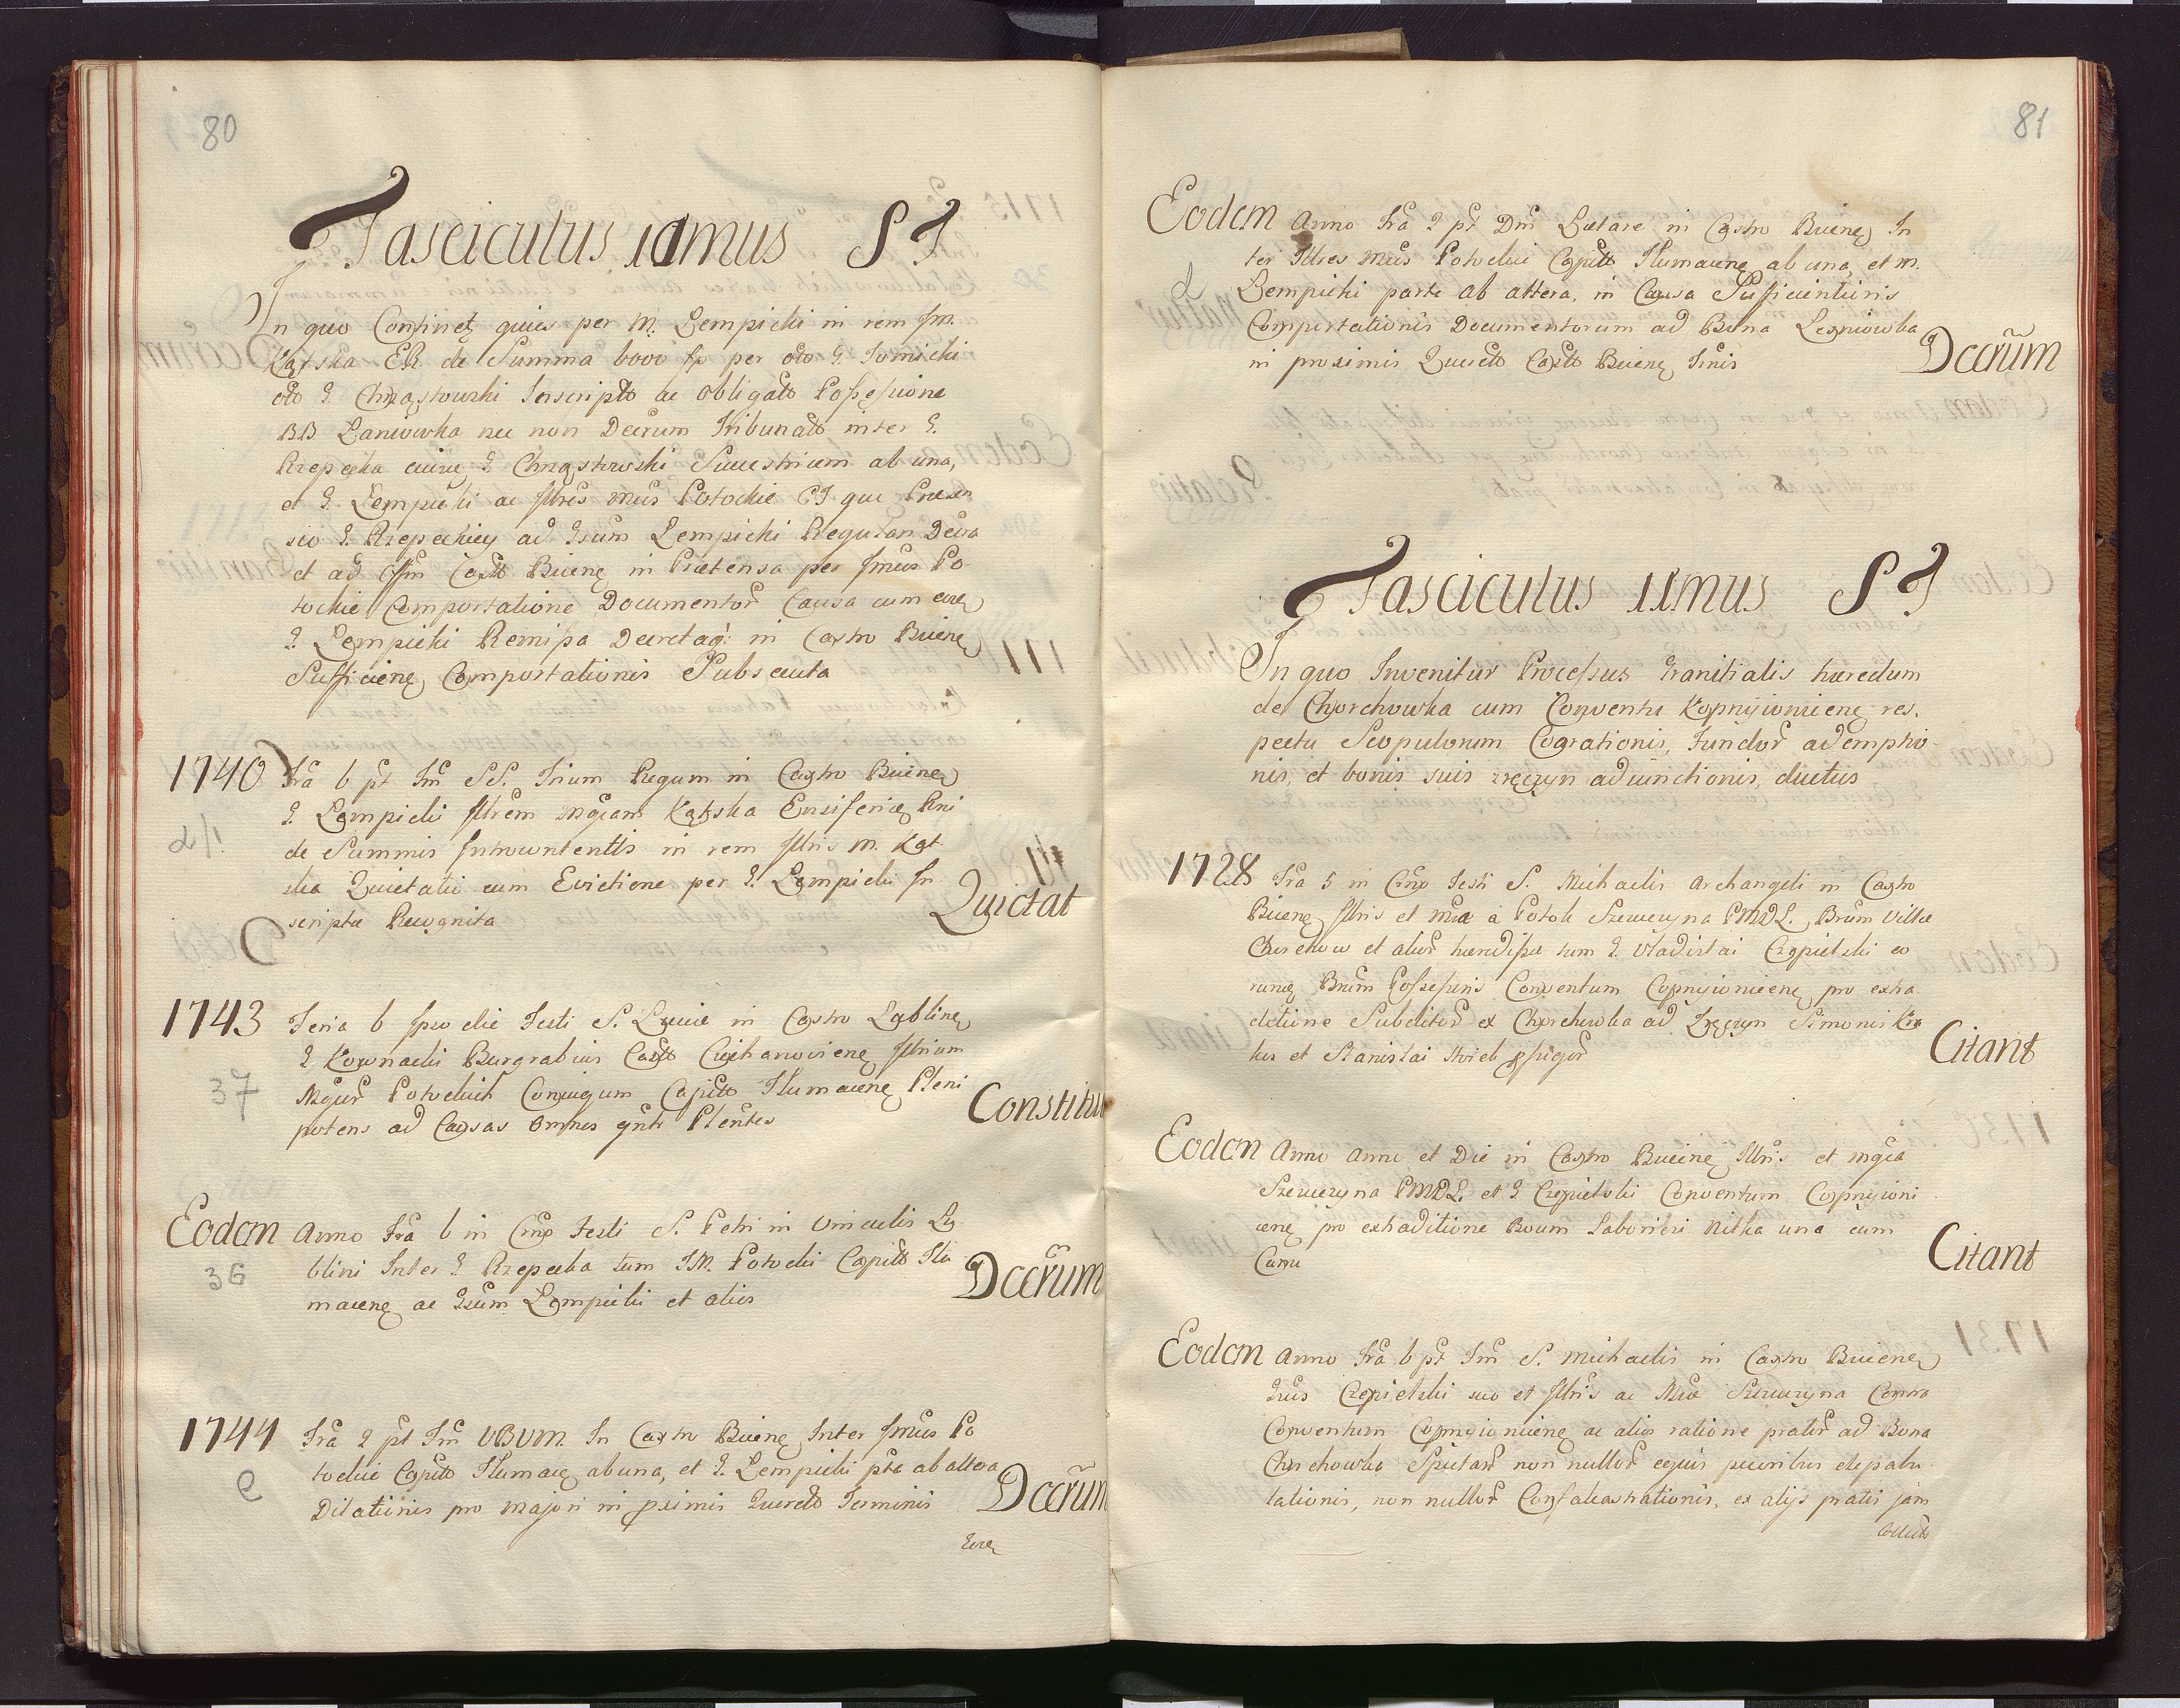 80
Fasciculus 10mus S J
In quo Continetz quies per M. Lempicki in rem Im.
Kątska ER. de Summa 6000 fp per olo G. Tomicki
olo G Chrząstowski Inscripto ac Obligato Possessione
BB Laniowka nec non Decrum Tribunalo inter G.
Rzepecka eiusq G Chrząstowski Sucestricem ab una,
et G. Lempicki ac Illres Mcus Potockie CJ que Proces
sio G. Rzepeckiey ad Gsum Lempicki Regulan Decra
et ad Offm Casto Bucenę in Prætensa per Imus Po-
tockie Comportatione Documentor Causa cum eoę
G Lempicki Remissa Decretaq in Castro Bucenę
Sufficienę Comportationis Subsecuta
1740 Fra 6 pt Fm SS. Trium Regum in Castro Bucenę
G. Lempicki Illrem Mgcam Kątska Ensiferię Rni
de Summis Introcontentis in rem Illris M. Kąt-
ska Quietatii cum Evictione per G. Lempicki In
scripta Recognita
Quictat
1743 Feria 6 Ipso die Festi S. Luciæ in Castro Lublinę
37
G Kownacki Burgrabius Casto Ciechanovienę Illrium
Mgcur Potockich Coniugum Capito Tlumacenę Pleni
potens ad Causas Omnes gnlr Plentes
Constitu
Eodem Anno Fra 6 in Cmp Festi S. Petri in Vinculis Lu
36
blini Inter G Rzepecka tum J.M. Potocki Capito Tlu
macenę ac Gsum Lempicki et alios
Dccrum
1744 Fra 2 pt Fm VBVM. In Castro Bucenę Inter Imus Po
e
tockie Capito Tlumaceę ab una, et G. Lempicki pte ab altera
Dilationis pro Majori in pximis Querelo Terminis
Dccrum
81
Eodem Anno Fra 2 pt Dm Lætare in Castro Bucenę In
ter Illres Mcus Potockie Capito Tlumacenę ab una, et M.
d
Lempicki parte ab altera, in Causa Sufficientionis
Comportationis Documentorum ad Bona Lesniowka
in proximis Querelo Casto Bucenę Tmis
Dccrum
Fasciculus 11mus S J
In quo Invenitur Processus Granitialis hæredum
de Chorchowka cum Conventu Koprzyionicenę res.
pectu Scopulorum Cograrationis, Fundor ademptio-
nis, et bonis suis Zręczyn adiunctionis, ductus
1728 Fra 5 in Cmp Festi S. Michaelis Archangeli in Castro
Bucenę Illris et Mca à Potok Szeweryna PMDL. Brum Villæ
Chorchow et alior hærediss tum G. Vladislai Czopielski eo
rumq Brum Possessoris Conventum Coprzyionicenę pro extra
ditione Subditor ex Chorchowka ad Zręczyn Simonis
et Stanislai
Citant
Eodem Anno et Die in Castro Bucenę Illris et Mgca
Szeweryna PMDL. et G Czopielski Conventum Coprzyioni
cenę pro extraditione Boum Laboriosi Nitka una cum
Curru
Citant
Eodem Anno Fra 6 pt Fm S. Michaelis in Castro Bucenę
Gsus Czopielski suo et Illris ac Mca Szeweryna Contra
Conventum Coprzyionicenę ac alios ratione prator ad Bona
Chorchowka Spectan non nullor equis pecoribus depabu-
lationis, non nullor Confalcastrationis, ex alijs pratis jam